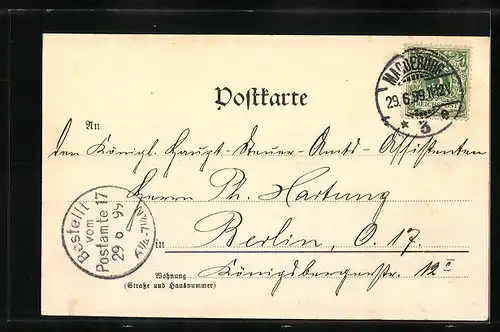 MAGDEBURG
29.6.99.11-12V
* 3 e
REICHSPOST
Postkarte
An
den Königl. Haupt-Steuer-Amts-Assistenten
Herrn Ph. Hartung
in Berlin, O. 17.
Wohnung Königsbergerstr. 12 II
(Straße und Hausnummer)
Bestellt
vom
Postamte 17
29 6 99